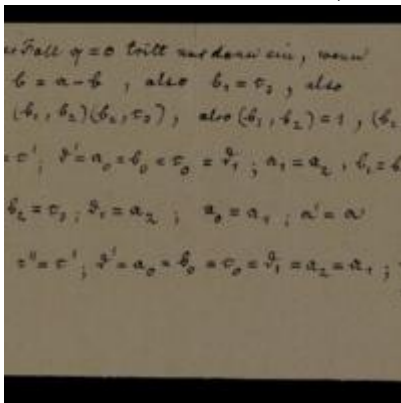 Fall q=0 tritt nur dann ein, wenn
b = a-b , also b₁ = τ₂ , also
(b₁, b₂)(b₂, τ₂), also (b₁, b₂) = 1 , (b₂
= τ' ; δ' = a₀ = b₀ = τ₀ = δ₁ ; a₁ = a₂ , b₁ = b
b₂ = τ₂ ; δ₁ = a₂ ; a₀ = a₁ ; a' = a
τ'' = τ' ; δ' = a₀ = b₀ = τ₀ = δ₁ = a₂ = a₁ ;